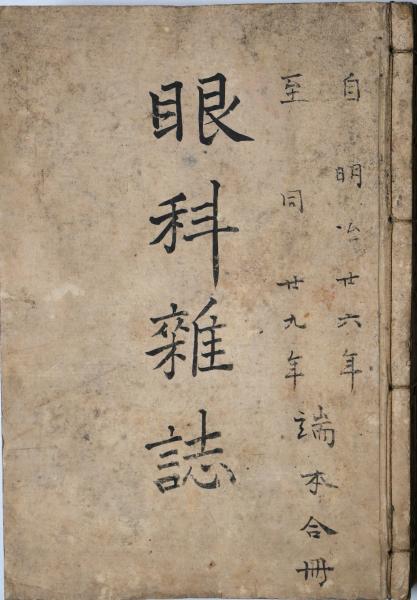 自明治廿六年
至同廿九年
端本合冊
眼科雜誌